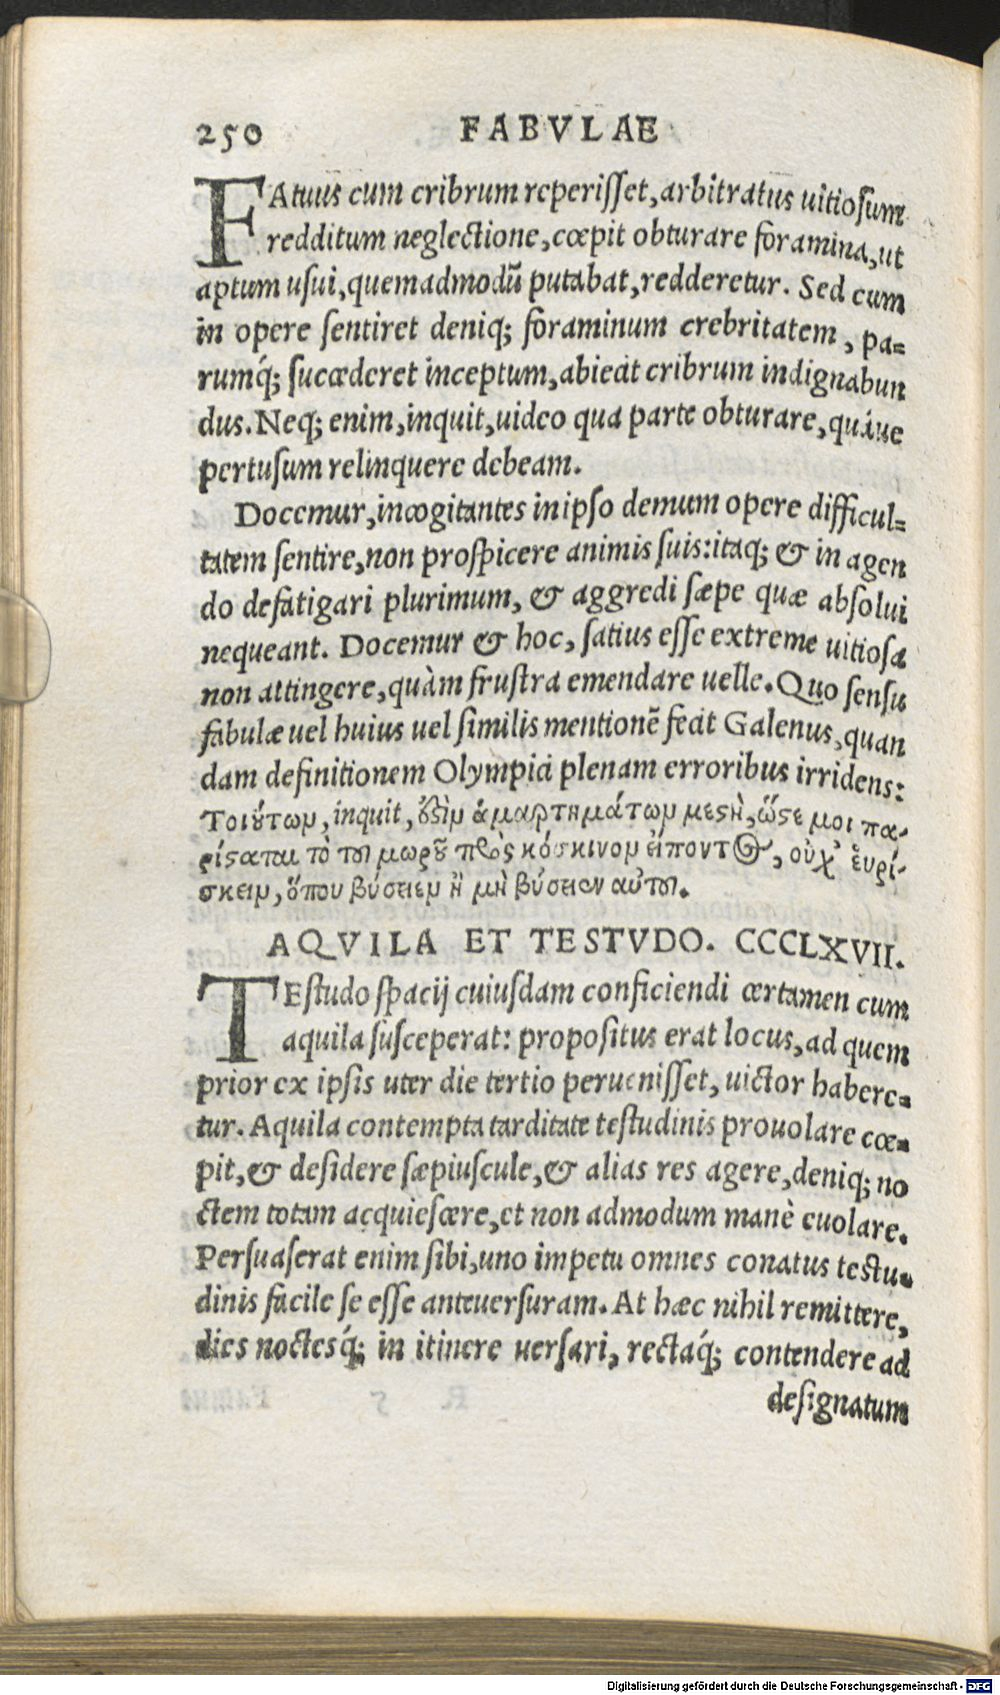 250 FABVLAE
FAtuus cum cribrum reperisset, arbitratus uitiosum
redditum neglectione, cœpit obturare foramina, ut
aptum usui, quemadmodū putabat, redderetur. Sed cum
in opere sentiret deniq; foraminum crebritatem, pa-
rumq́; succederet inceptum, abiecit cribrum indignabun
dus. Neq; enim, inquit, uideo qua parte obturare, quáue
pertusum relinquere debeam.
Docemur, incogitantes in ipso demum opere difficul-
tatem sentire, non prospicere animis suis: itaq; & in agen
do defatigari plurimum, & aggredi sæpe quæ absolui
nequeant. Docemur & hoc, satius esse extreme uitiosa
non attingere, quàm frustra emendare uelle. Quo sensu
fabulæ uel huius uel similis mentionē fecit Galenus, quan
dam definitionem Olympici plenam erroribus irridens:
Τοιούτων, inquit, ὅδιν ἁμαρτημάτων μεστὴ, ὥστε μοι πα-
ρίσαται τὸ τοῦ μωροῦ πρὸς κόσκινον εἰπόντος, οὐχ᾽ ἑυρί-
σκειν, ὅπου βύσειεν ἢ μὴ βύσειεν αὐτό.
AQVILA ET TESTVDO. CCCLXVII.
TEstudo spacij cuiusdam conficiendi certamen cum
aquila susceperat: propositus erat locus, ad quem
prior ex ipsis uter die tertio peruenisset, uictor habere-
tur. Aquila contempta tarditate testudinis prouolare cœ-
pit, & desidere sæpiuscule, & alias res agere, deniq; no
ctem totam acquiescere, et non admodum manè euolare.
Persuaserat enim sibi, uno impetu omnes conatus testu-
dinis facile se esse anteuersuram. At hæc nihil remittere,
dies noctesq́; in itinere uersari, rectaq́; contendere ad
designatum
Digitalisierung gefördert durch die Deutsche Forschungsgemeinschaft - DFG